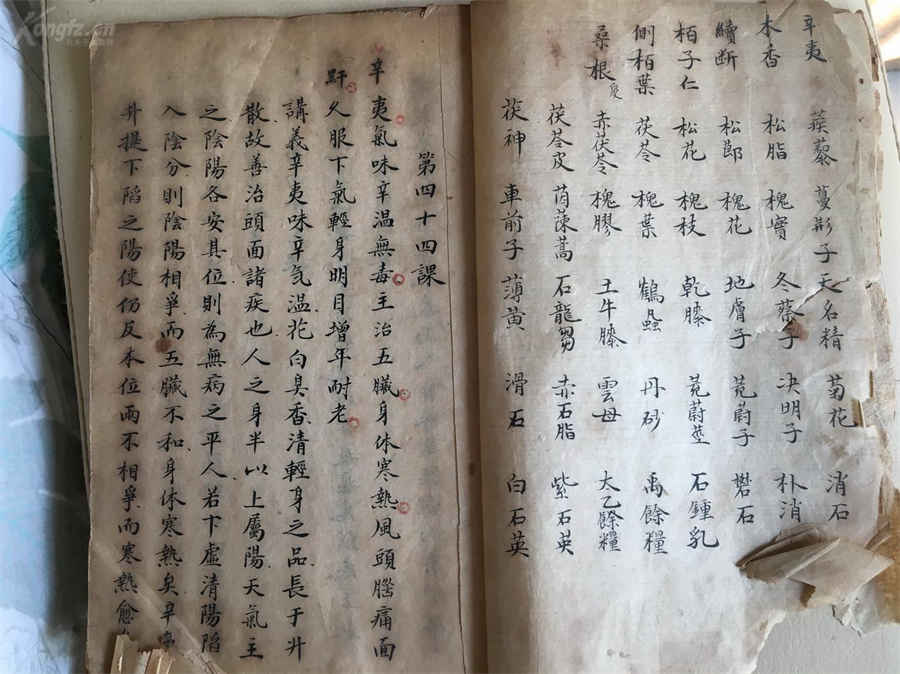 辛夷 蒺藜 蔓形子 天名精 菊花 消石
木香 松脂 槐實 冬葵子 决明子 朴消
續断 松郎 槐花 地膚子 茺蔚子 礬石
栢子仁 松花 槐枝 乾膝 茺蔚莖 石鍾乳
側栢葉 茯苓 槐葉 鶴虱 丹砂 禹餘糧
桑根皮 赤茯苓 槐膠 土牛膝 雲母 太乙餘糧
茯苓皮 茵蔯蒿 石龍芻 赤石脂 紫石英
茯神 車前子 蒲黄 滑石 白石英
第四十四課
辛夷氣味辛温無毒主治五臟身体寒熱風頭腦痛面
䵟久服下氣輕身明目增年耐老
講義辛夷味辛气温花白臭香清輕身之品長于升
散故善治頭面諸疾也人之身半以上屬陽天氣主
之陰陽各安其位則為無病之平人若下虛清陽陷
入陰分則陰陽相爭而五臟不和身体寒熱矣辛
升提下陷之陽使仍反本位兩不相爭而寒熱愈
Kongfz.cn